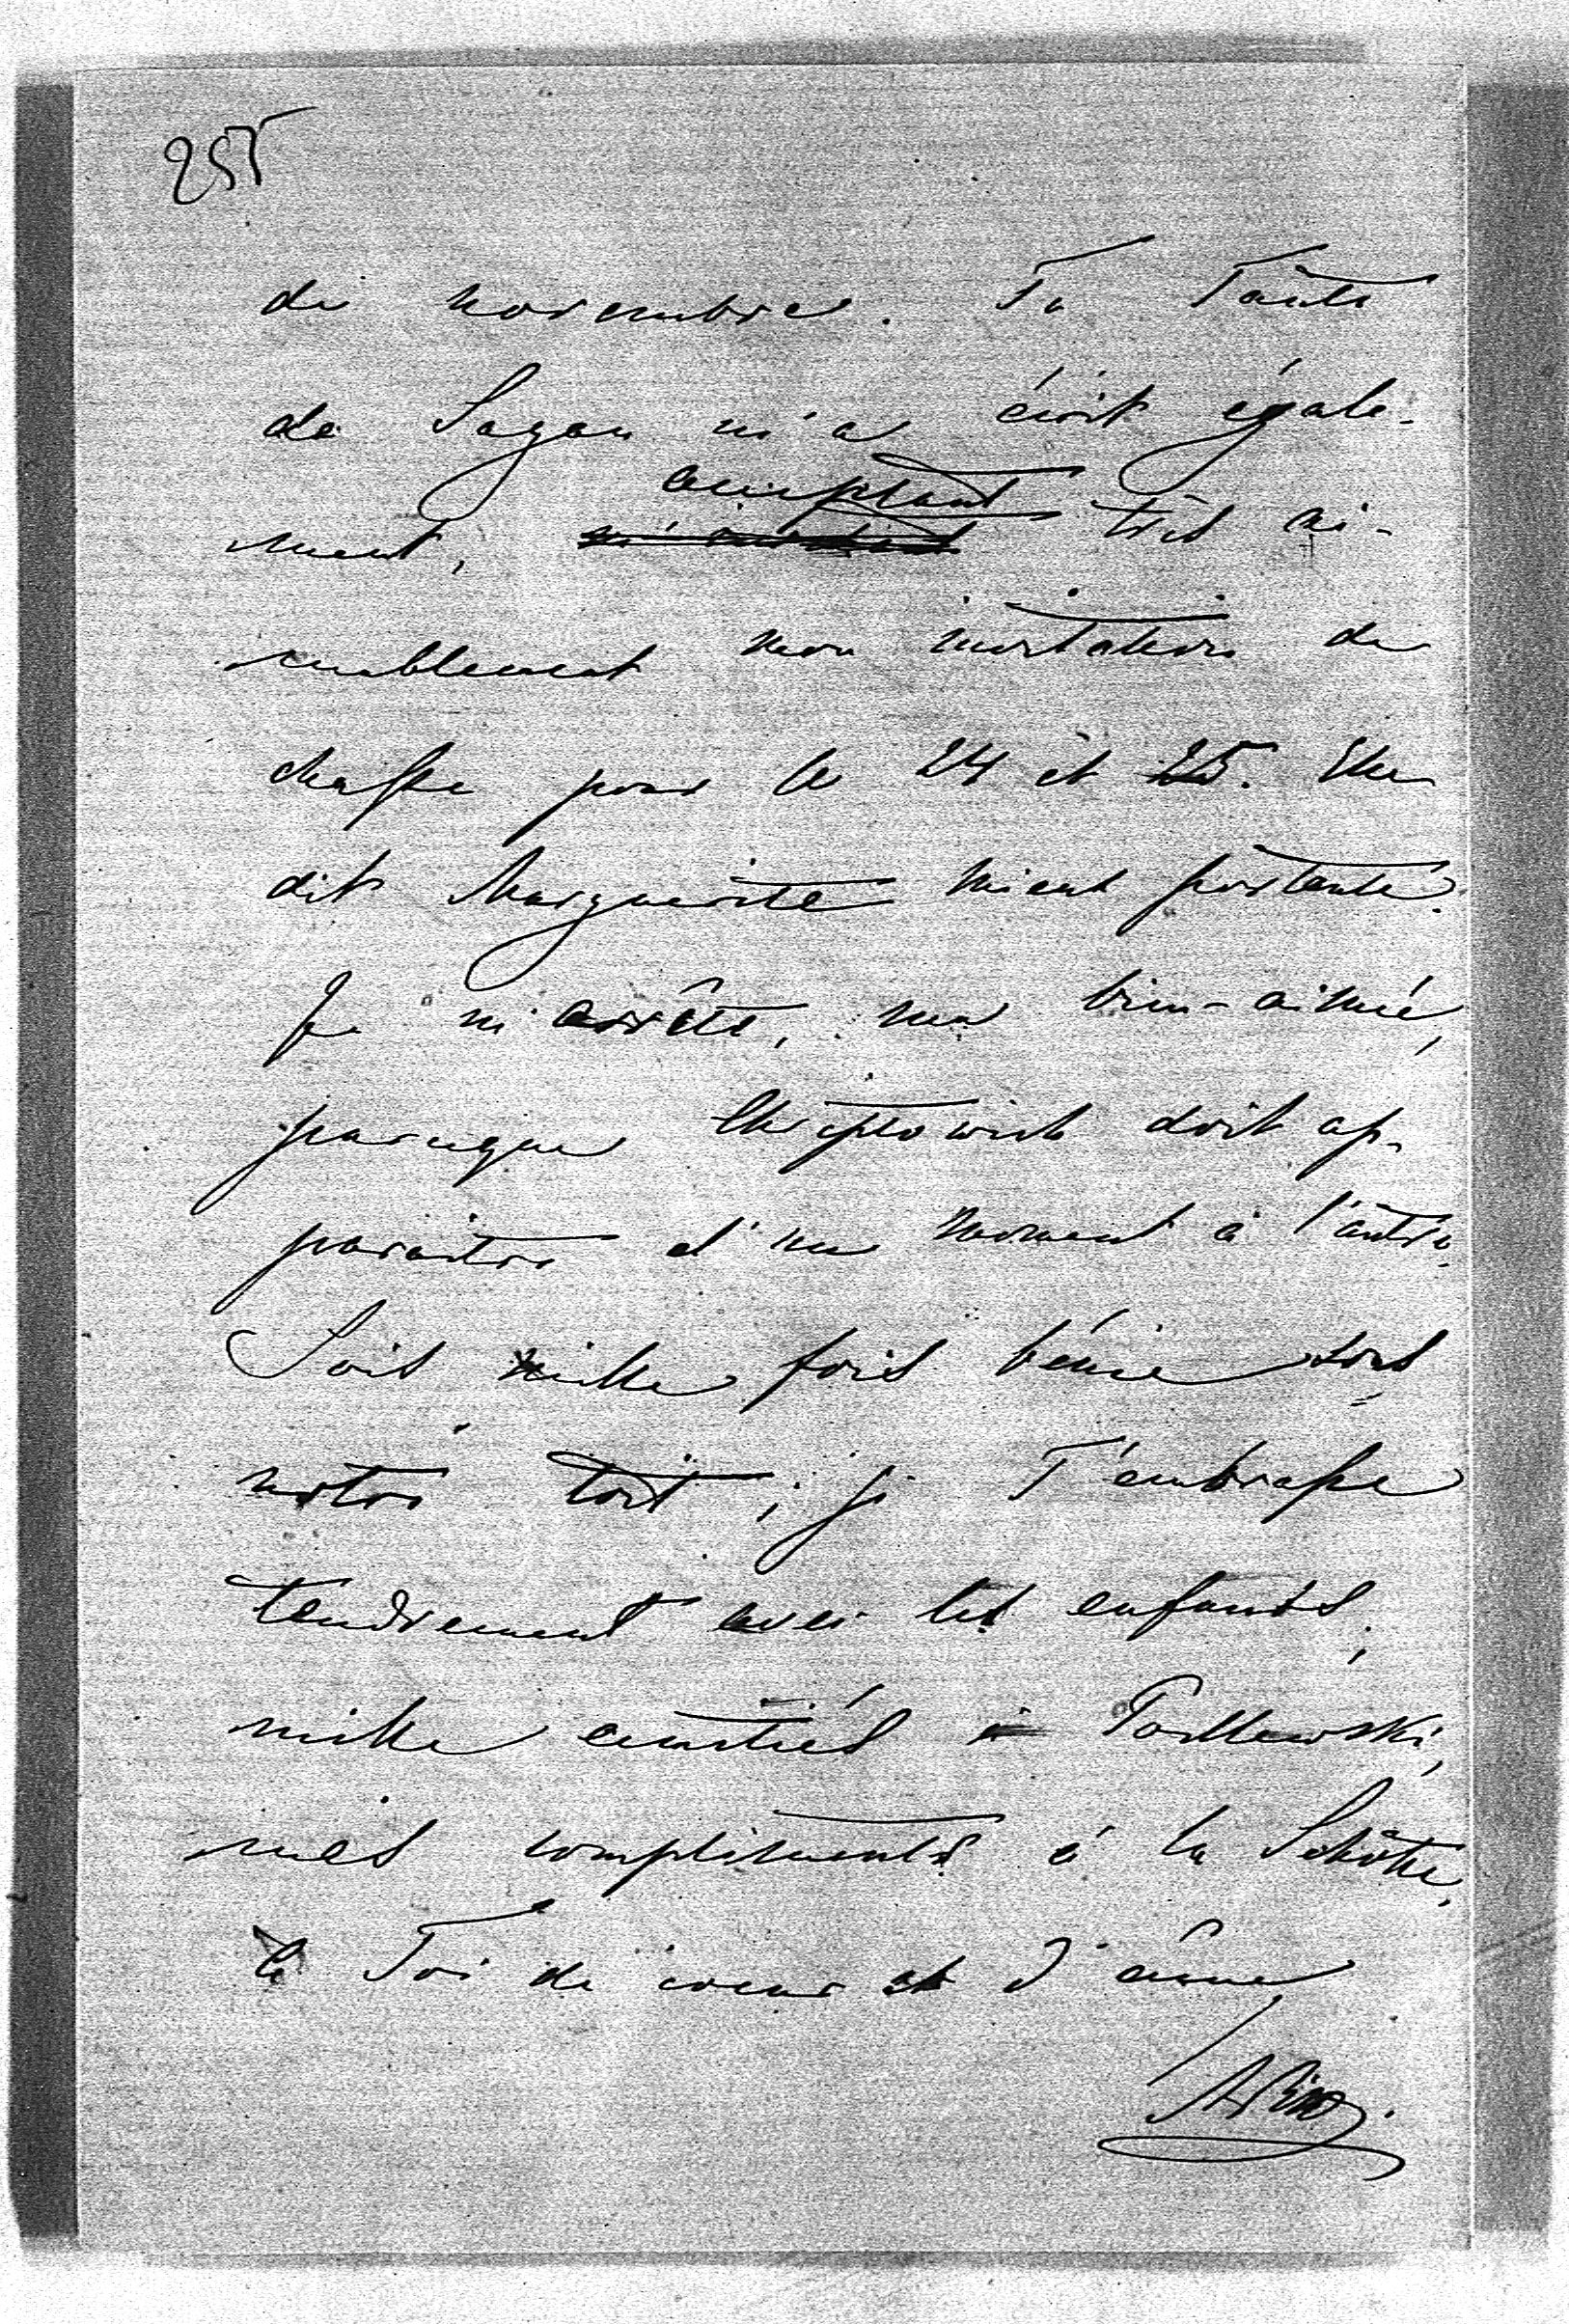 255
de novembre. Ta Tante
de Sagan m'a écrit égale-
ment, acceptant très ai-
mablement mon invitation de
chasse pour le 24 et 25. Elle
dit Marguerite mieux portante.
Je m'arrête, ma bien-aimée,
parceque doit ap-
paraître d'un moment à l'autre.
Sois mille fois bénie sous
notre toit; je T'embrasse
tendrement avec les enfants;
mille amitiés à
mes compliments à la
à Toi de coeur et d'âme